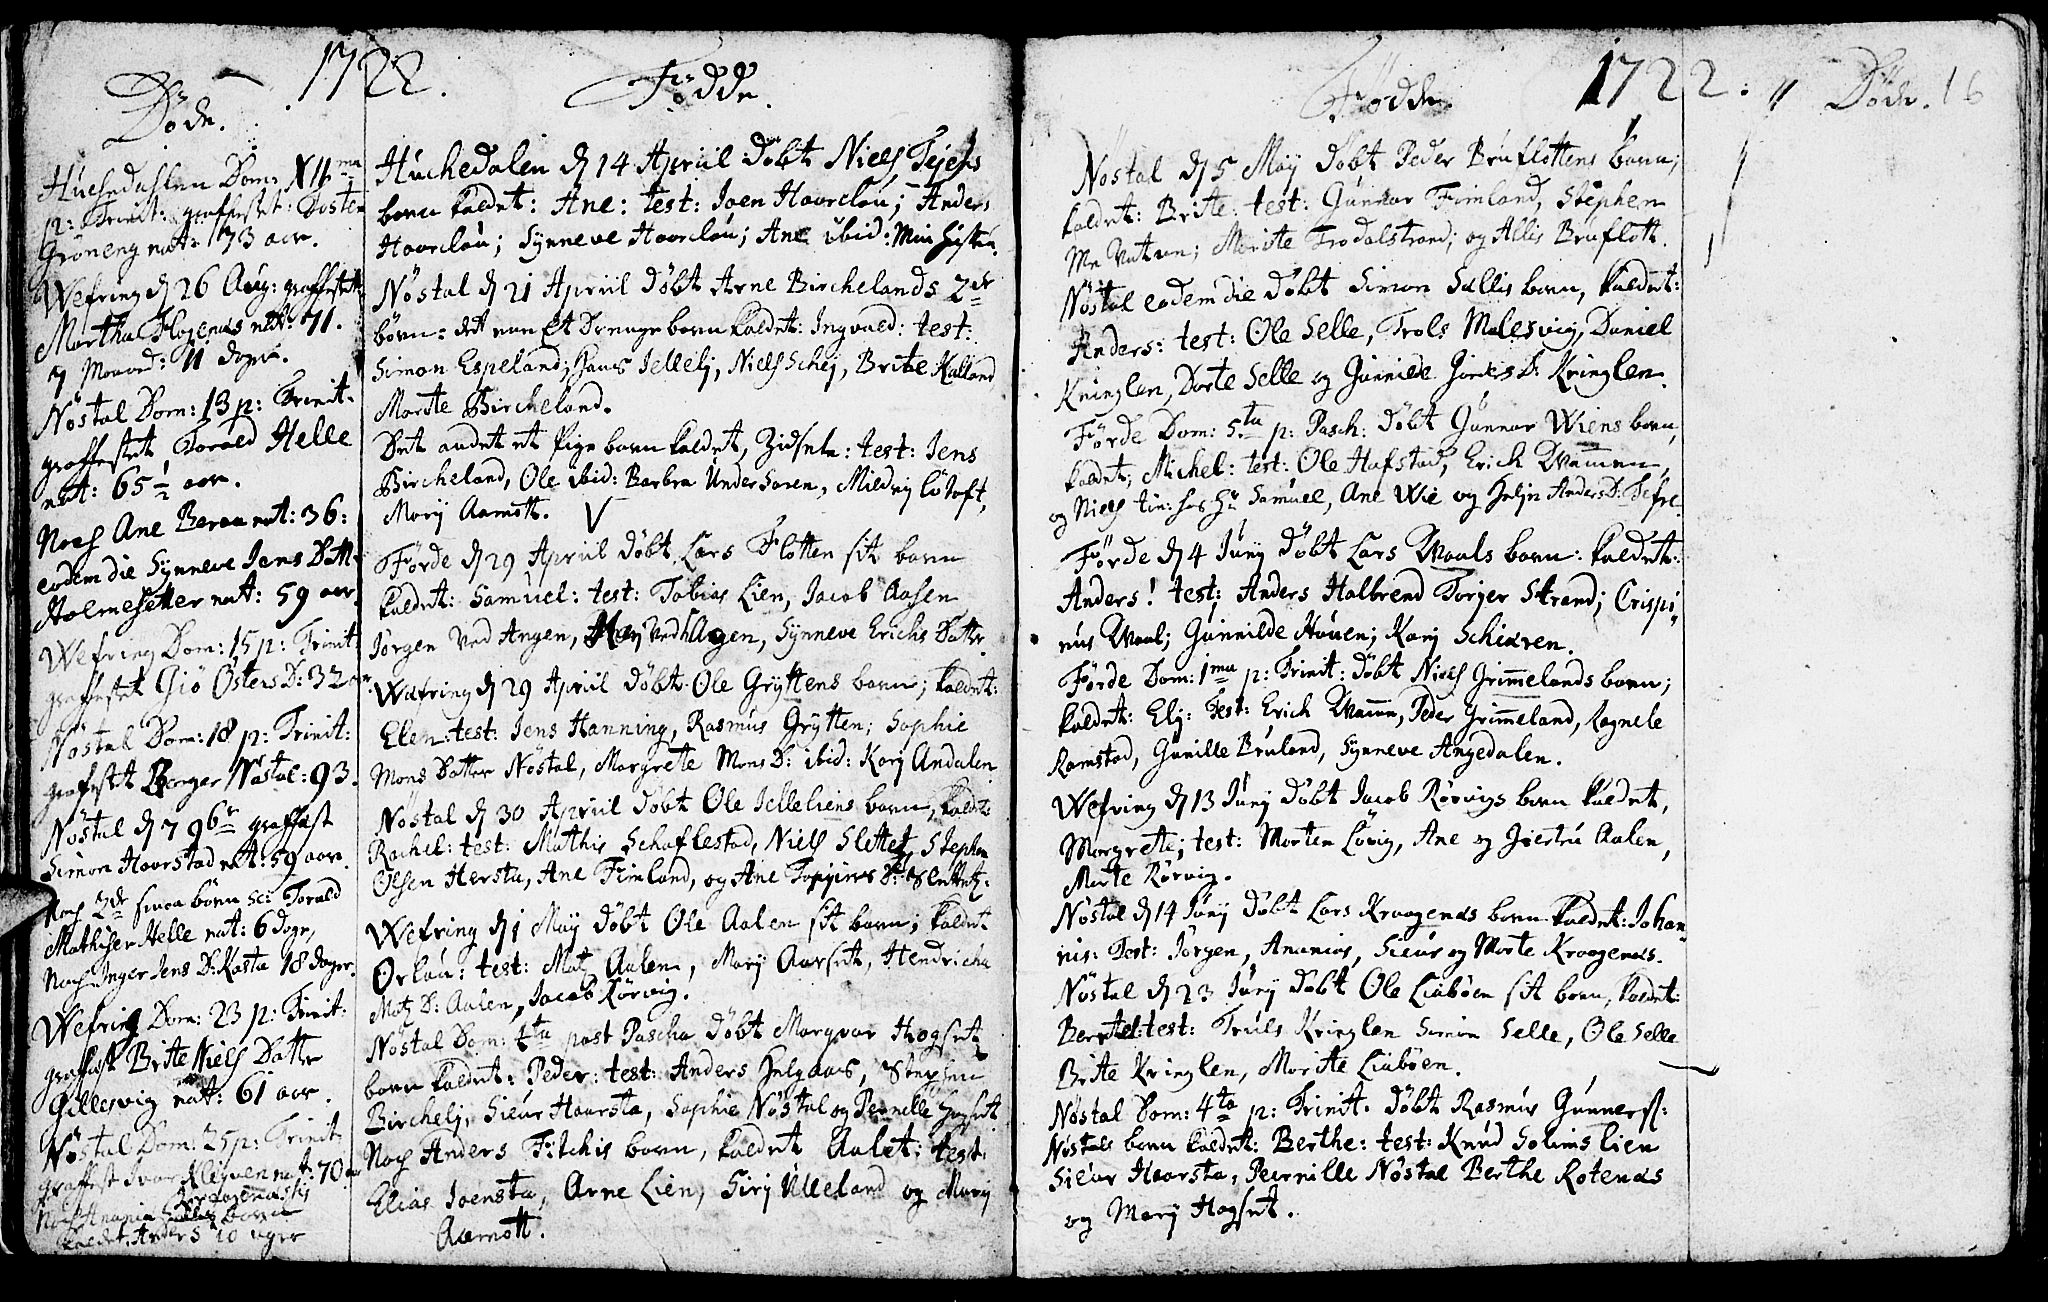 1722.
Döde.
Huchedahlen Dom: XII ma
p: Trinit: graffestet: Dosten
Gröneng nat: 73 aar.
Wefring d 26 Aug: graffestet
Martha Flogenæs nat: 71.
7 Maaned: 11 dogr.
Nöstal Dom: 13 p: Trinit:
graffestet, Torald Helle
nat: 65 1/2 aar.
Noch Ane nat: 36:
eodem die Synneve Jens Datt:
Holmesetter nat: 59 aar.
Wefring Dom: 15 p: Trinit:
graffestet Giö Østers D: 32 aar
Nöstal Dom: 18 p: Trinit:
graffestet Nöstal: 93.
Nöstal d 7 9br graffest
Simon Haarstad nat: 59 aar.
Noch 2de smaa börn sc: Torald
Mathisen Helle nat: 6 dogr,
Noch Inger Jens D: Kasta 18 dager.
Wefring Dom: 23 p: Trinit:
graffest Brite Niels Datter
Gillesvig nat: 61 aar.
Nöstal Dom: 25 p: Trinit
graffest Ivar nat: 70 aar
Noch Anania barn
kaldet: Anders 10 uger
Födde.
Huchedalen d 14 Apriil döbt Niels
barn kaldet: Ane: test: Joen Haarclau; Anders
Haarclau; Synneve Haarclau; Ane ibid: Min Hustru.
Nöstal d 21 Apriil döbt Arne Birchelands 2de
börn: det eene Et Drenge barn kaldet: Ingvald: test:
Simon Espeland; Hans Jellelj, Niels Schej, Brite Kalland
Marite Bircheland.
Det andet et Pige barn kaldet, Zidsele: test: Jens
Bircheland, Ole ibid: Barbra Undersaren, Mildrij Lötoft,
Marij Aamott. V
Förde d 29 Apriil döbt Lars Flotten sit barn
kaldet: Samuel: test: Tobias Lien, Jacob Aasen
Jörgen Ved Angen, Karj Ved Angen, Synneve Erichs Datter.
Wæfring d 29 Apriil döbt Ole Gryttens barn; kaldet:
Elen: test: Jens Hanning, Rasmus Grytten; Sophie
Mons Datter Nöstal, Margrete Mons D: ibid: Karj Andalen
Nöstal d 30 Apriil döbt Ole Jelleliens barn, kaldet
Rachel: test: Mathis Schaflestad, Niels Slettet, Stephen
Olsen Hersta, Ane Fimland, og Ane D: Slettetz.
Wefring d 1 Maij döbt Ole Aalen sit barn; kaldet
Orlau: test: Matz Aalen, Marij Aarset, Hendricha
Matz D: Aalen, Jacob Rörvig.
Nöstal Dom: 4ta post Pascha döbt Margvar Hogset
barn kaldet: Peder: test: Anders Helgaas, Stephen
Birchelj, Sieur Haarsta, Sophie Nöstal og Pernelle Hogset
Noch Anders Fitchis barn, kaldet Aalet: test:
Elias Joensta, Arne Lien, Sirj Ulleland og Marij
Aamott.
Födde. 1722: // Döde. 16
Nöstal d 5 Maij döbt Peder Bruflottens barn;
kaldet: Brite: test: Gunnar Fimland, Stephen
Marite Trodalstrand; og Allis Bruflott.
Nöstal eodem die döbt Simon Sellis barn, kaldet:
Anders: test: Ole Selle, Trols Malesvig, Daniel
Kringlen, Dorte Selle og Gunnilde D: Kringlen.
Förde Dom: 5ta p: Pasch: döbt Gunnar Wiens barn,
kaldet; Michel: test: Ole Hafstad, Erich
og Niels Samuel, Ane Wie og Anders D:
Förde d 4 Junij döbt Lars Waals barn: kaldet:
Anders! test; Anders Halbrend Torger Strand; Crispi,,
nus Waal; Gunnilde Houen; Karj Schieren.
Förde Dom: 1ma p: Trinit: döbt Niels Grimmelands barn;
kaldet: Elj: Test: Erich Peder Grimmeland, Ragnele
Ramstad, Gunille Bruland, Synneve Angedalen.
Wefring d 13 Junij döbt Jacob Rörvigs barn kaldet,
Margrete; test: Morten Lövig, Ane og Giertru Aalen,
Marte Rörvig.
Nöstal d 14 Junij döbt Lars Kraagenæs barn kaldet: Johan-
nis: Test: Jörgen, Ananias, Sieur og Marte Kraagenæs.
Nöstal d 23 Junij döbt Ole Liaböen sit barn, kaldet:
Bertel: test: Truls Kringlen Simon Selle, Ole Selle
Brite Kringlen, Marite Liaböen.
Nöstal Dom: 4ta p: Trinit: döbt Rasmus Gunners:
Nöstals barn kaldet: Berthe: test: Knud Solemslien
Sieur Haarsta, Peernille Nöstal Berthe Rotenæs
og Marj Hogset.